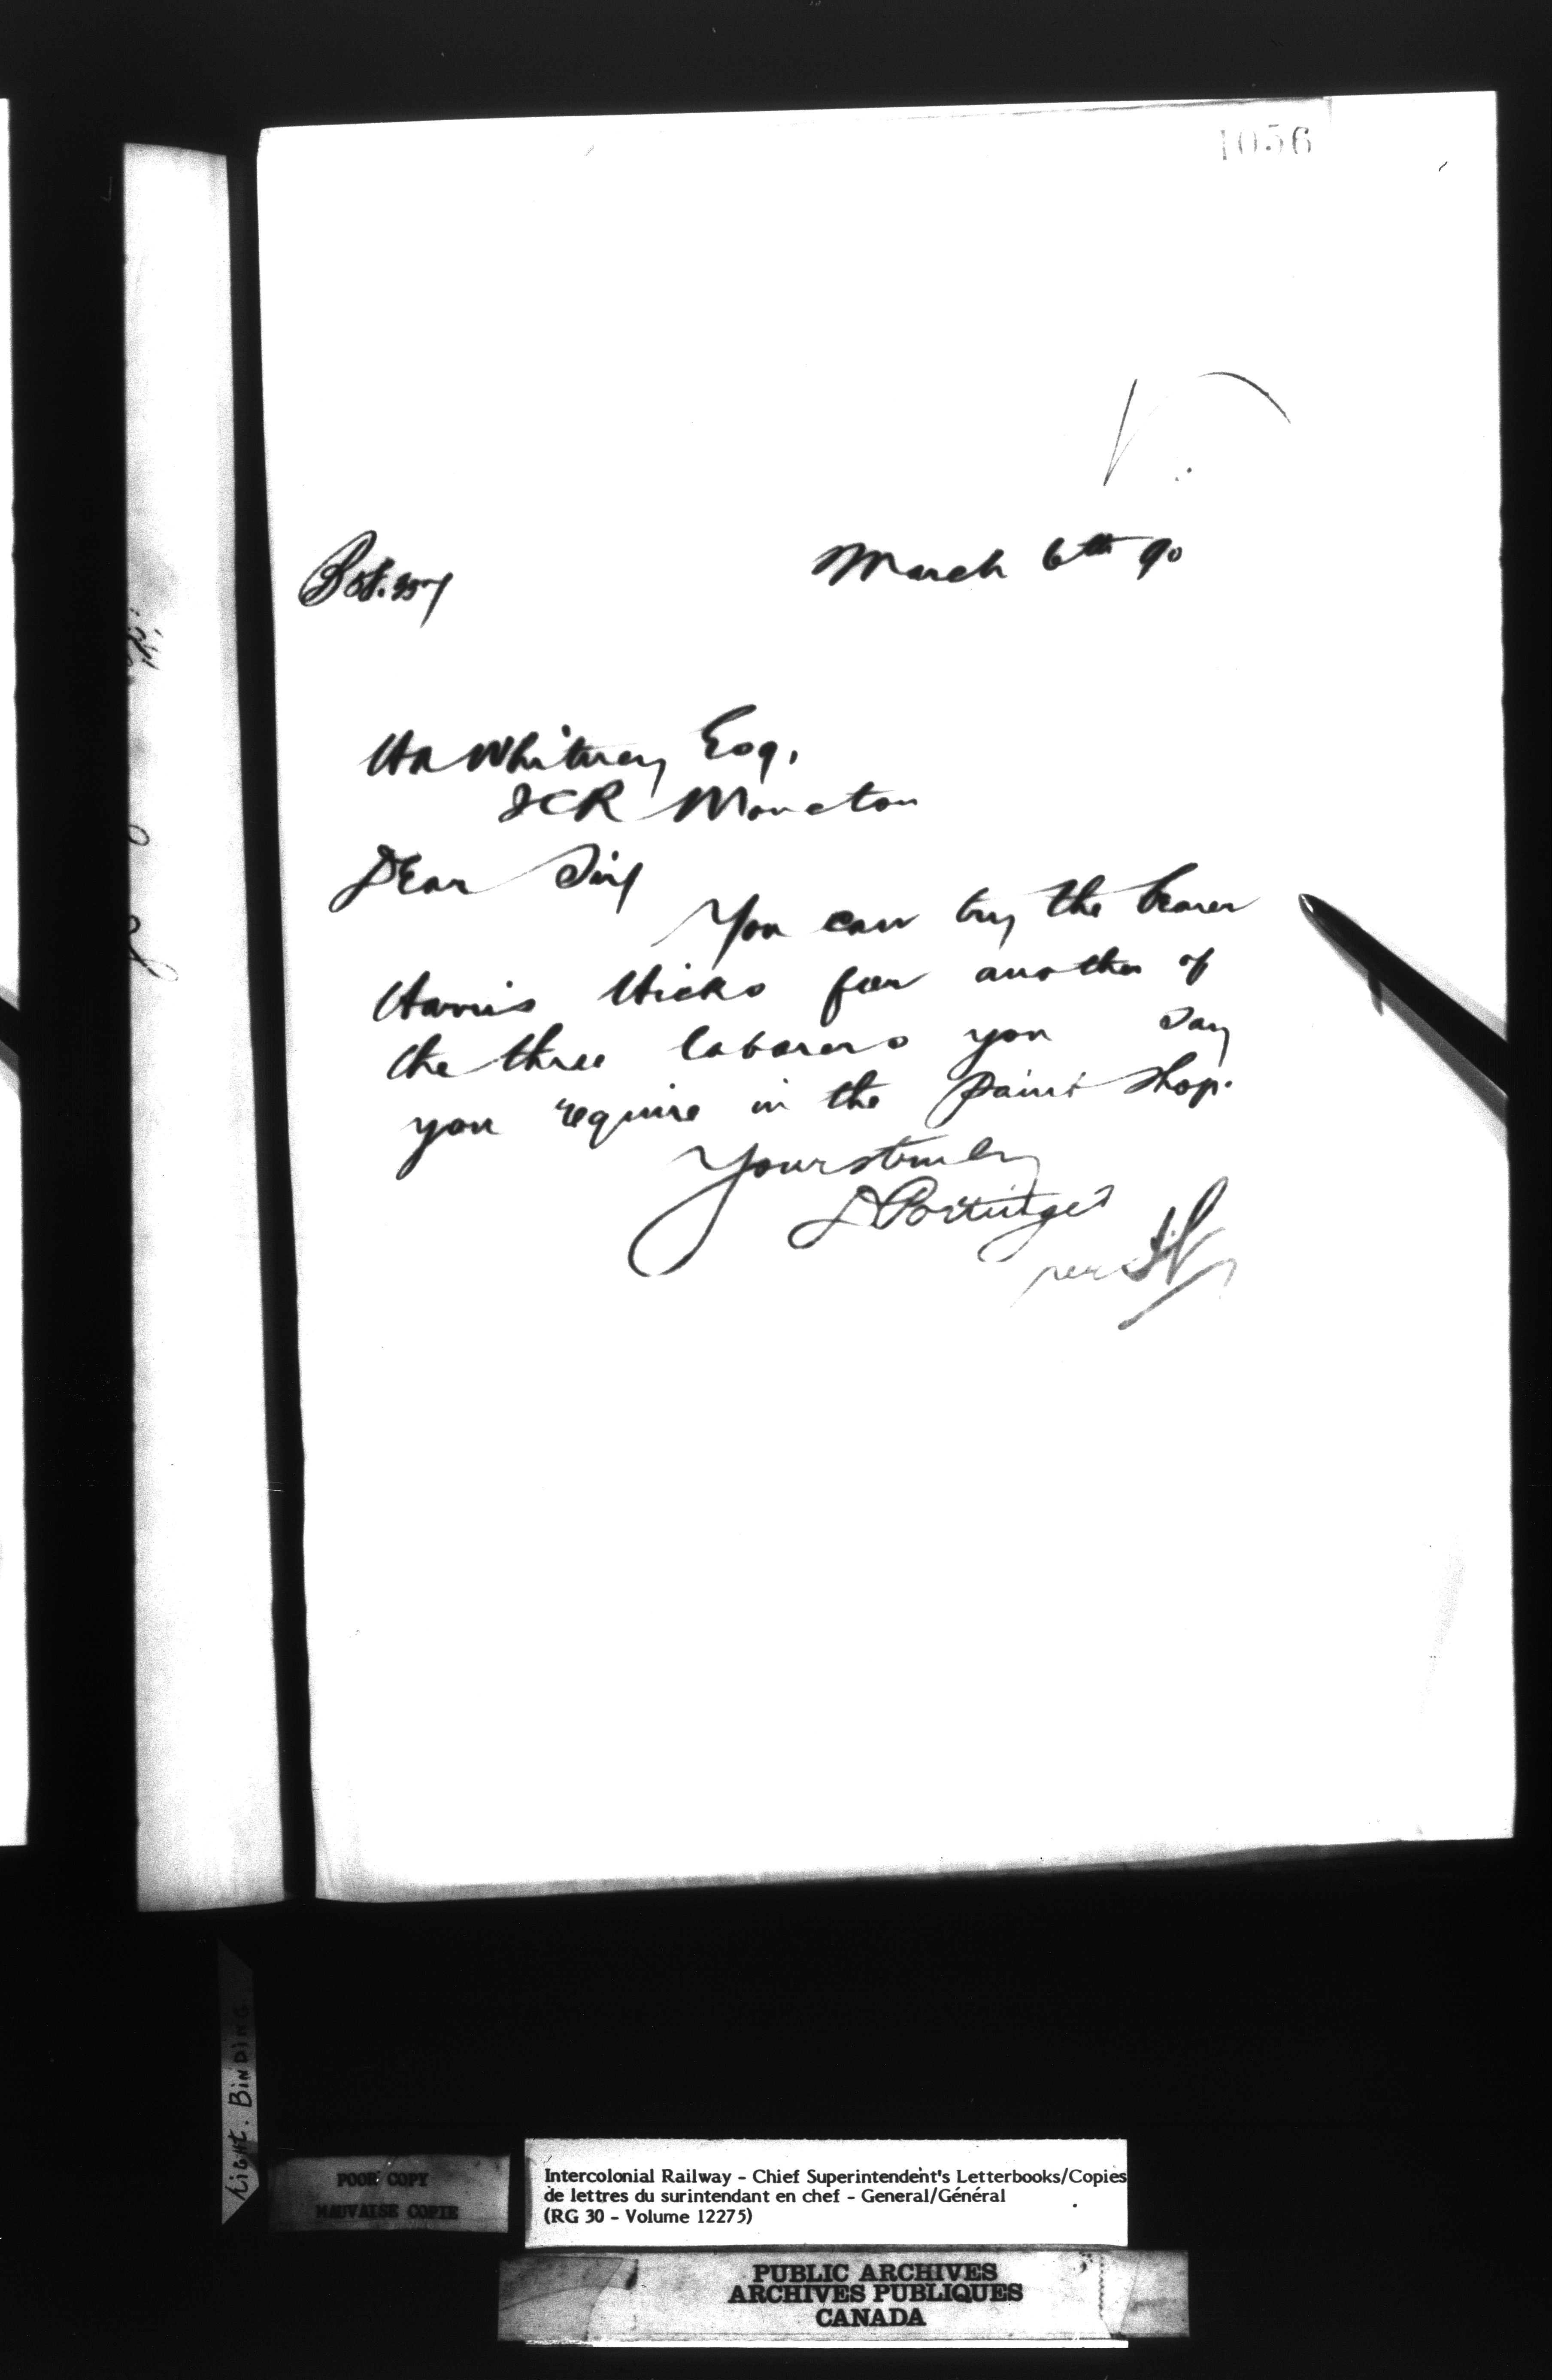 1056
March 6th 90
HA Whitney Esq.
ICR Moncton
Dear Sir/
You can try the bearer
Harris Hicks for another of
the three laborers you say
you require in the paint shop.
Yours truly
D Pottinger
per
Light. BINDING.
POOR COPY
MAUVAISE COPIE
Intercolonial Railway - Chief Superintendent's Letterbooks/Copies
de lettres du surintendant en chef - General/Général
(RG 30 - Volume 12275)
PUBLIC ARCHIVES
ARCHIVES PUBLIQUES
CANADA